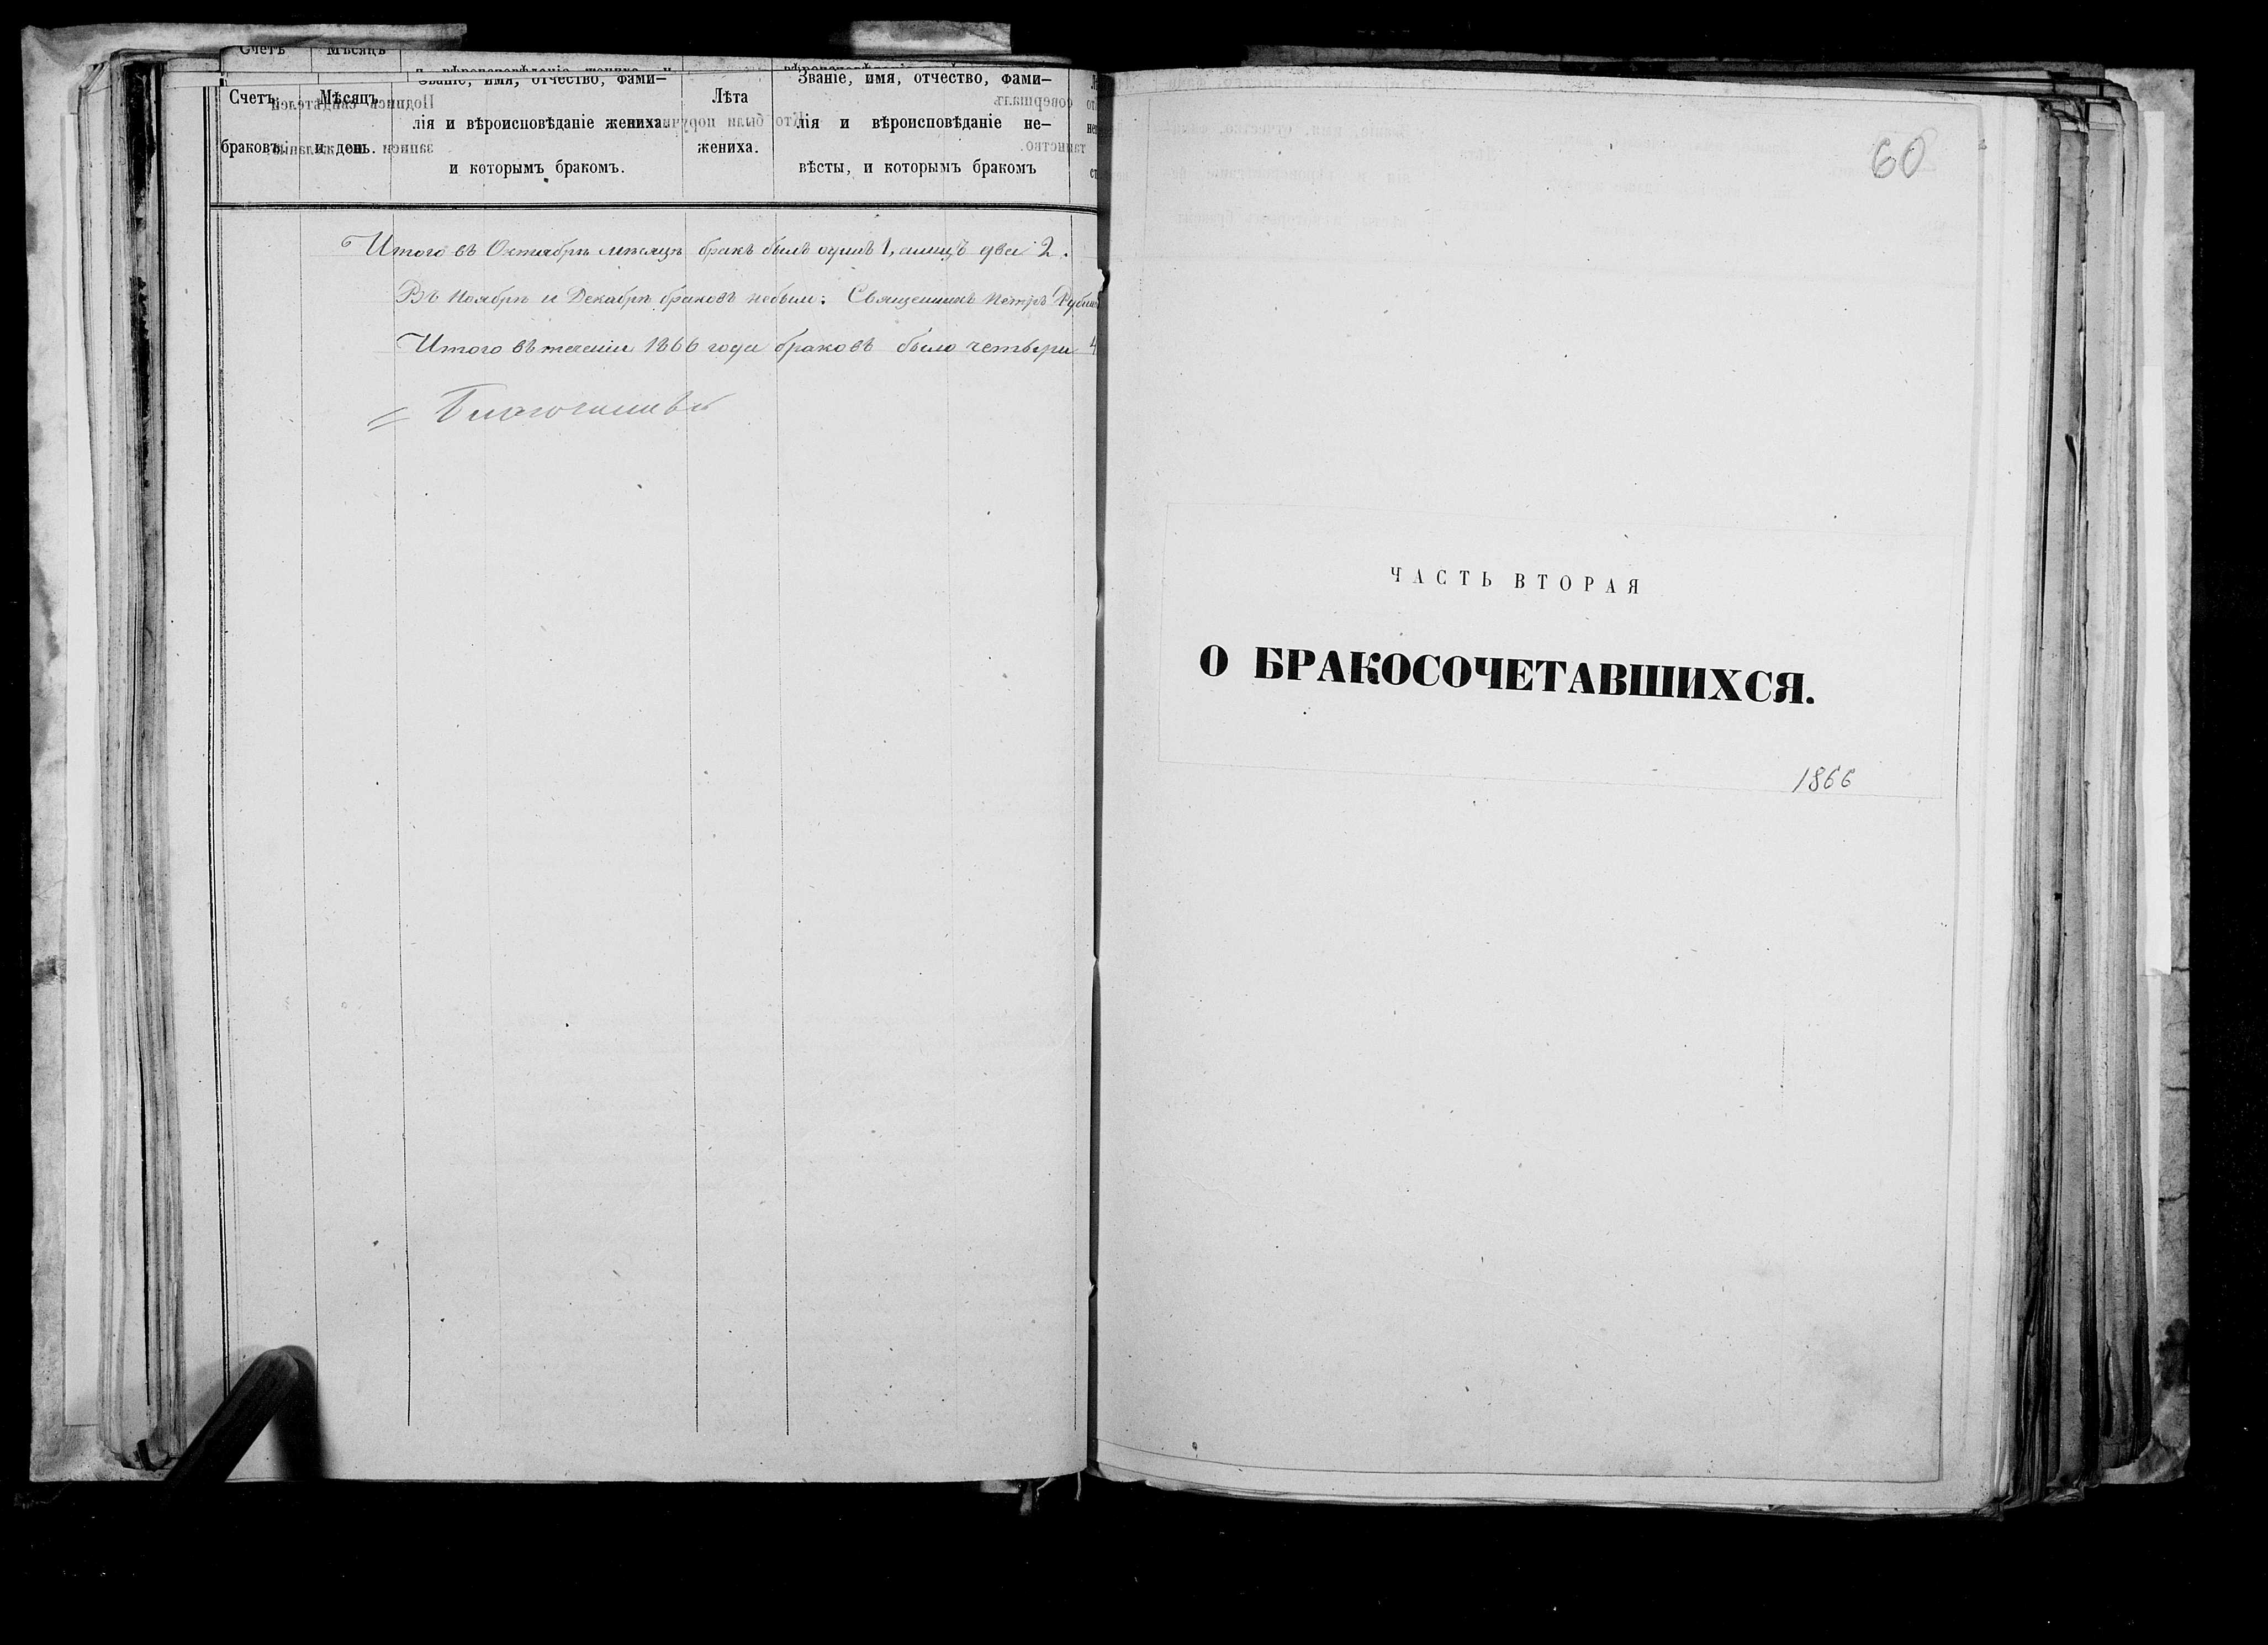 Счетъ
Мѣсяцъ
Счетъ
браковъ.
Мѣсяцъ
и день.
Званіе, имя, отчество, фами-
лія и вѣроисповѣданіе жениха
и которымъ бракомъ.
Лѣта
жениха.
Званіе, имя, отчество, фами-
лія и вѣроисповѣданіе не-
вѣсты, и которымъ бракомъ
Итого въ Октябрѣ мѣсяцѣ бракъ былъ одинъ 1, а лицъ два 2.
Въ Ноябрѣ и Декабрѣ браковъ небыли. Священникъ Петръ
Итого въ теченіи 1866 года браковъ было четыри 4
60
ЧАСТЬ ВТОРАЯ
О БРАКОСОЧЕТАВШИХСЯ.
1866